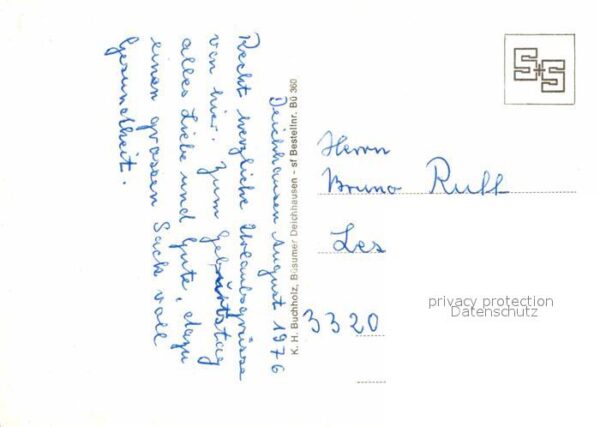 Deichhausen August 1976
Recht herzliche Urlaubsgrüsse
von hier. Zum Geburtstag
alles Liebe und Gute, dazu
einen grossen Sack voll
Gesundheit.
K. H. Buchholz, Büsumer Deichhausen – sf Bestellnr. Bü 360
S+S
Herrn
Bruno Ruff
Les
3320
privacy protection
Datenschutz